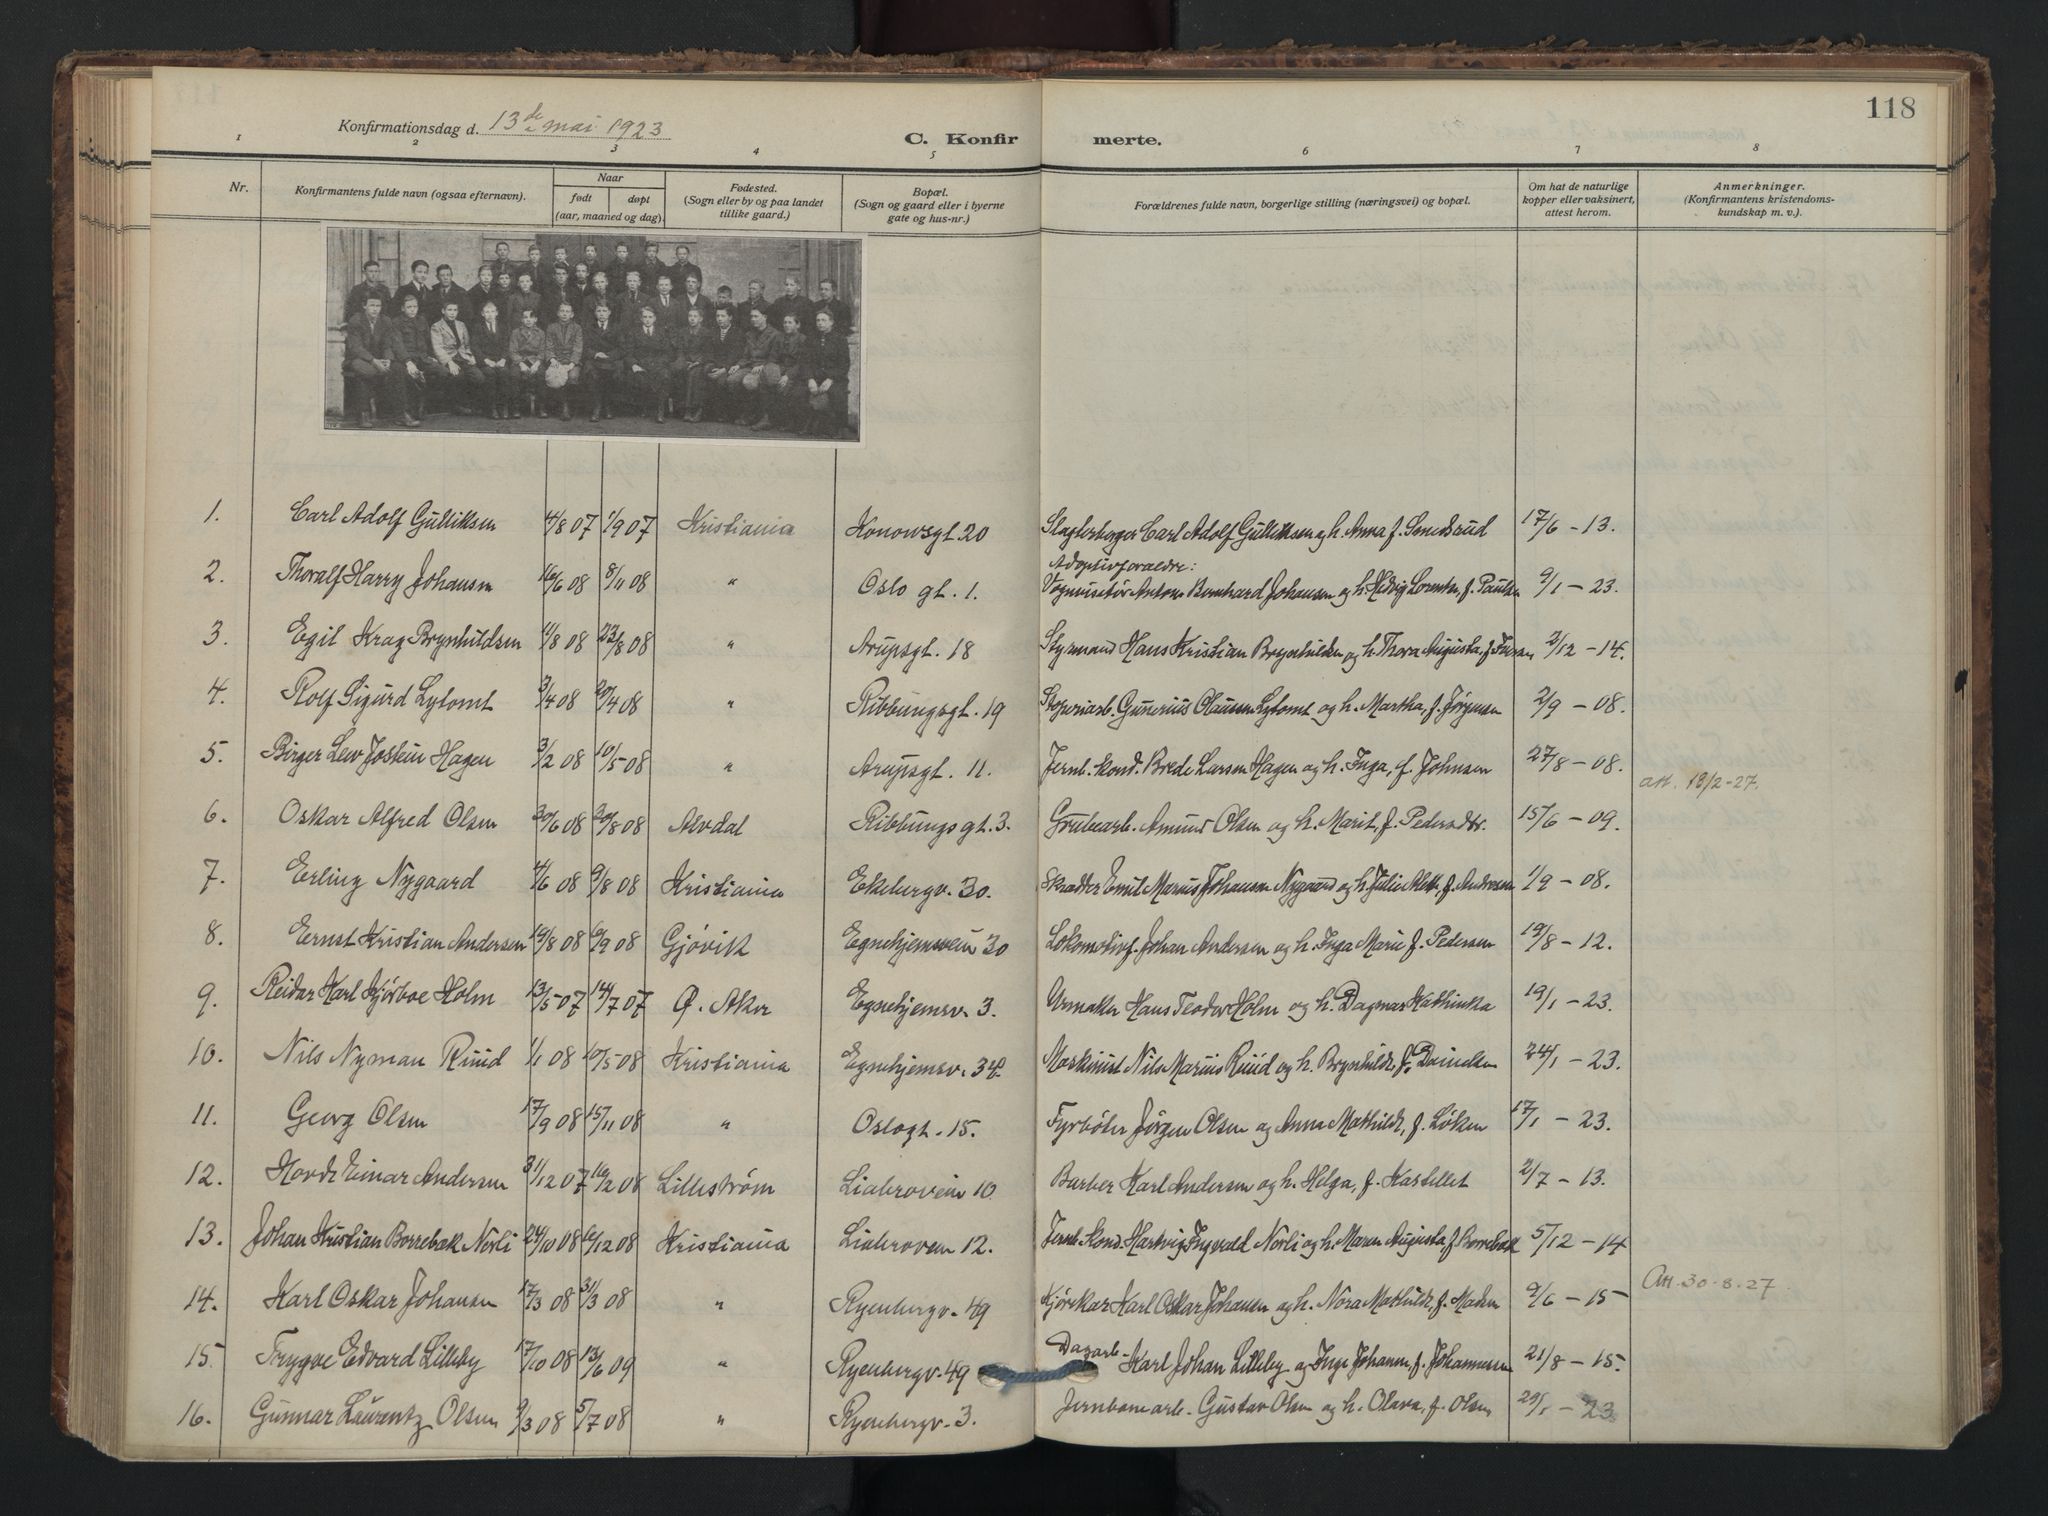 118
Konfirmationsdag d. 13de mai 1923
C. Konfirmerte.
1 2 3 4 5 6 7 8
Nr.
Konfirmantens fulde navn (ogsaa efternavn).
Naar
født døpt
(aar, maaned og dag).
Fødested.
(Sogn eller by og paa landet
tillike gaard.)
Bopæl.
(Sogn og gaard eller i byerne
gate og hus-nr.)
Forældrenes fulde navn, borgerlige stilling (næringsvei) og bopæl.
Om hat de naturlige
kopper eller vaksinert,
attest herom.
Anmerkninger.
(Konfirmantens kristendoms-
kundskap m. v.).
1. Carl Adolf Gulliksen 4/8 07 1/9 07 Kristiania Konowsgt. 20 Slagterborger Carl Adolf Gulliksen og h. Anna f. Smedsrud 17/6 - 13.
Adoptivforældre:
2. Thoralf Harry Johansen 16/6 08 8/11 08 " Oslo gt. 1. Vognvisitør Anton Bernhard Johansen og h. Hedvig Lorentze, f. Paulsen 9/1 - 23.
3. Egil Krag Brynhildsen 11/8 08 23/8 08 " Arupsgt. 18 Styrmand Hans Kristian Brynhildsen og h. Thora Augusta, f. 2/12 - 14.
4. Rolf Sigurd Lytomt 3/4 08 20/4 08 " Ribbungsgt. 19 Gunerius Olausen Lytomt og h. Martha, f. Jørgensen 2/9 - 08.
5. Birger Lew Jostein Hagen 3/2 08 10/5 08 " Arupsgt. 11. Jernb. kond. Brede Larsen Hagen og h. Inga, f. Johnsen 27/8 - 08.
att. 18/2-27.
6. Oskar Alfred Olsen 30/6 08 20/8 08 Alvdal Ribbungsgt. 3. Grubearb. Amund Olsen og h. Marit, f. Pedersdtr. 15/6 - 09.
7. Erling Nygaard 4/6 08 9/8 08 Kristiania Ekebergv. 30. Skrædder Emil Marius Johansen Nygaard og h. Julie Aleth, f. Andresen 1/9 - 08.
8. Ernst Kristian Andersen 19/8 08 6/9 08 Gjøvik Egnehjemsvein 30 Lokomotivf. Johan Andersen og h. Inga Marie f. Pedersen 19/8 - 12.
9. Reidar Karl Kjørboe Holm 13/5 07 14/7 07 Ø. Aker Egnehjemsv. 3. Urmaker Hans Teodor Holm og h. Dagmar Kathinka 19/1 - 23.
10. Nils Nyman Ruud 1/1 08 10/5 08 Kristiania Egnehjemsv. 34 Maskinist Nils Marius Ruud og h. Brynhild, f. Danielsen 24/1 - 23.
11. Georg Olsen 17/9 08 15/11 08 " Oslogt. 15. Fyrbøter Jørgen Olsen og Anna Mathilde, f. Løken 17/1 - 23.
12. Hovde Einar Andersen 31/12 07 16/2 08 Lillestrøm Liabrovein 10 Barber Karl Andersen og h. Helga, f. Kastellet 2/7 - 13.
13. Johan Kristian Borrebæk Norli 24/10 08 16/12 08 Kristiania Liabrovein 12. Jernb. kond. Hartvig Ingvald Norli og h. Maren Augusta, f. Borrebæk 5/12 - 14
14. Karl Oskar Johansen 17/3 08 31/3 08 " Ryenbergv. 49 Kjørekar Karl Oskar Johansen og h. Nora Mathilde, f. Madsen 9/6 - 15
Att. 30-8-27
15. Trygve Edvard Lilleby 17/10 08 13/6 09 " Ryenbergv. 49 Dagarb. Karl Johan Lilleby og Inga Johanne, f. Johannessen 21/8 - 15.
16. Gunnar Laurentz Olsen 9/3 08 5/7 08 " Ryenbergv. 3. Jernbanearb. Gustav Olsen og h. Olava, f. Olsen 29/1 - 23.